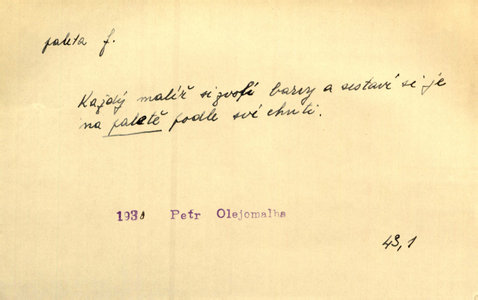 paleta f.
Každý malíř si zvolí barvy a sestaví si je
na paletě podle své chuti.
1930 Petr Olejomalba
43,1